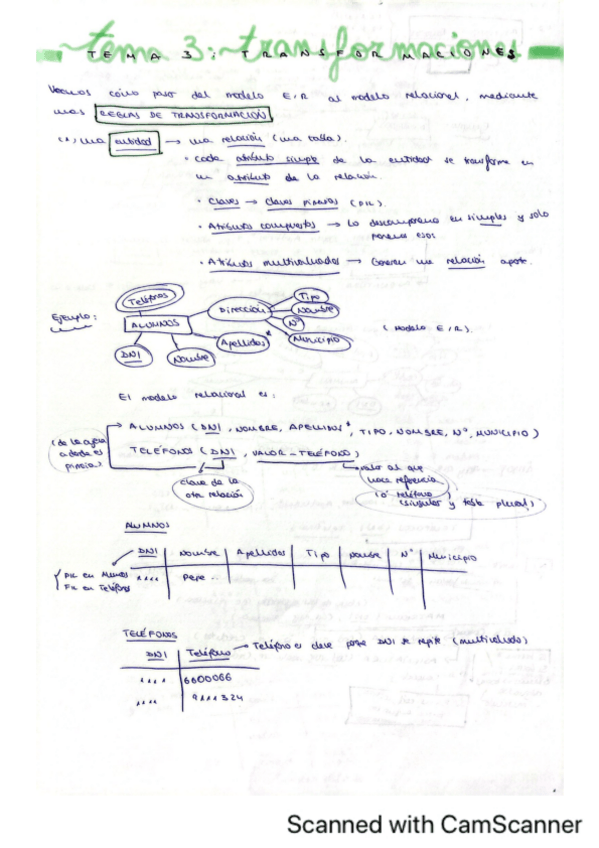 tema 3: transformaciones
TEMA 3: TRANSFORMACIONES
Veamos cómo pasar del modelo E/R al modelo relacional, mediante
unas REGLAS DE TRANSFORMACIÓN
una entidad → una relación (una tabla).
· cada atributo simple de la entidad se transforma en
un atributo de la relación.
· Claves → claves primarias (PK).
· Atributos compuestos → Lo descomponemos en simples y solo
ponemos esos
· Atributos multivaluados → Generar una relación aparte.
Ejemplo:
Teléfonos
ALUMNOS
DNI
Nombre
Apellidos*
Dirección
Tipo
Nombre
Nº
Municipio
(Modelo E/R).
El modelo relacional es:
ALUMNOS (DNI, NOMBRE, APELLIDOS*, TIPO, NOMBRE, Nº, MUNICIPIO)
TELÉFONOS (DNI, VALOR-TELÉFONO)
(de la ajena
a donde es
primaria)
clave de la
otra relación
valor al que
hace referencia
(o teléfono)
(singular y tabla plural)
ALUMNOS
DNI Nombre Apellidos Tipo Nombre Nº Municipio
.... Pepe ..
PK en Alumnos
FK en Teléfonos
TELÉFONOS
DNI Teléfono → Teléfono es clave porque DNI se repite (multivaluado)
.... 6600066
.... 9111324
Scanned with CamScanner